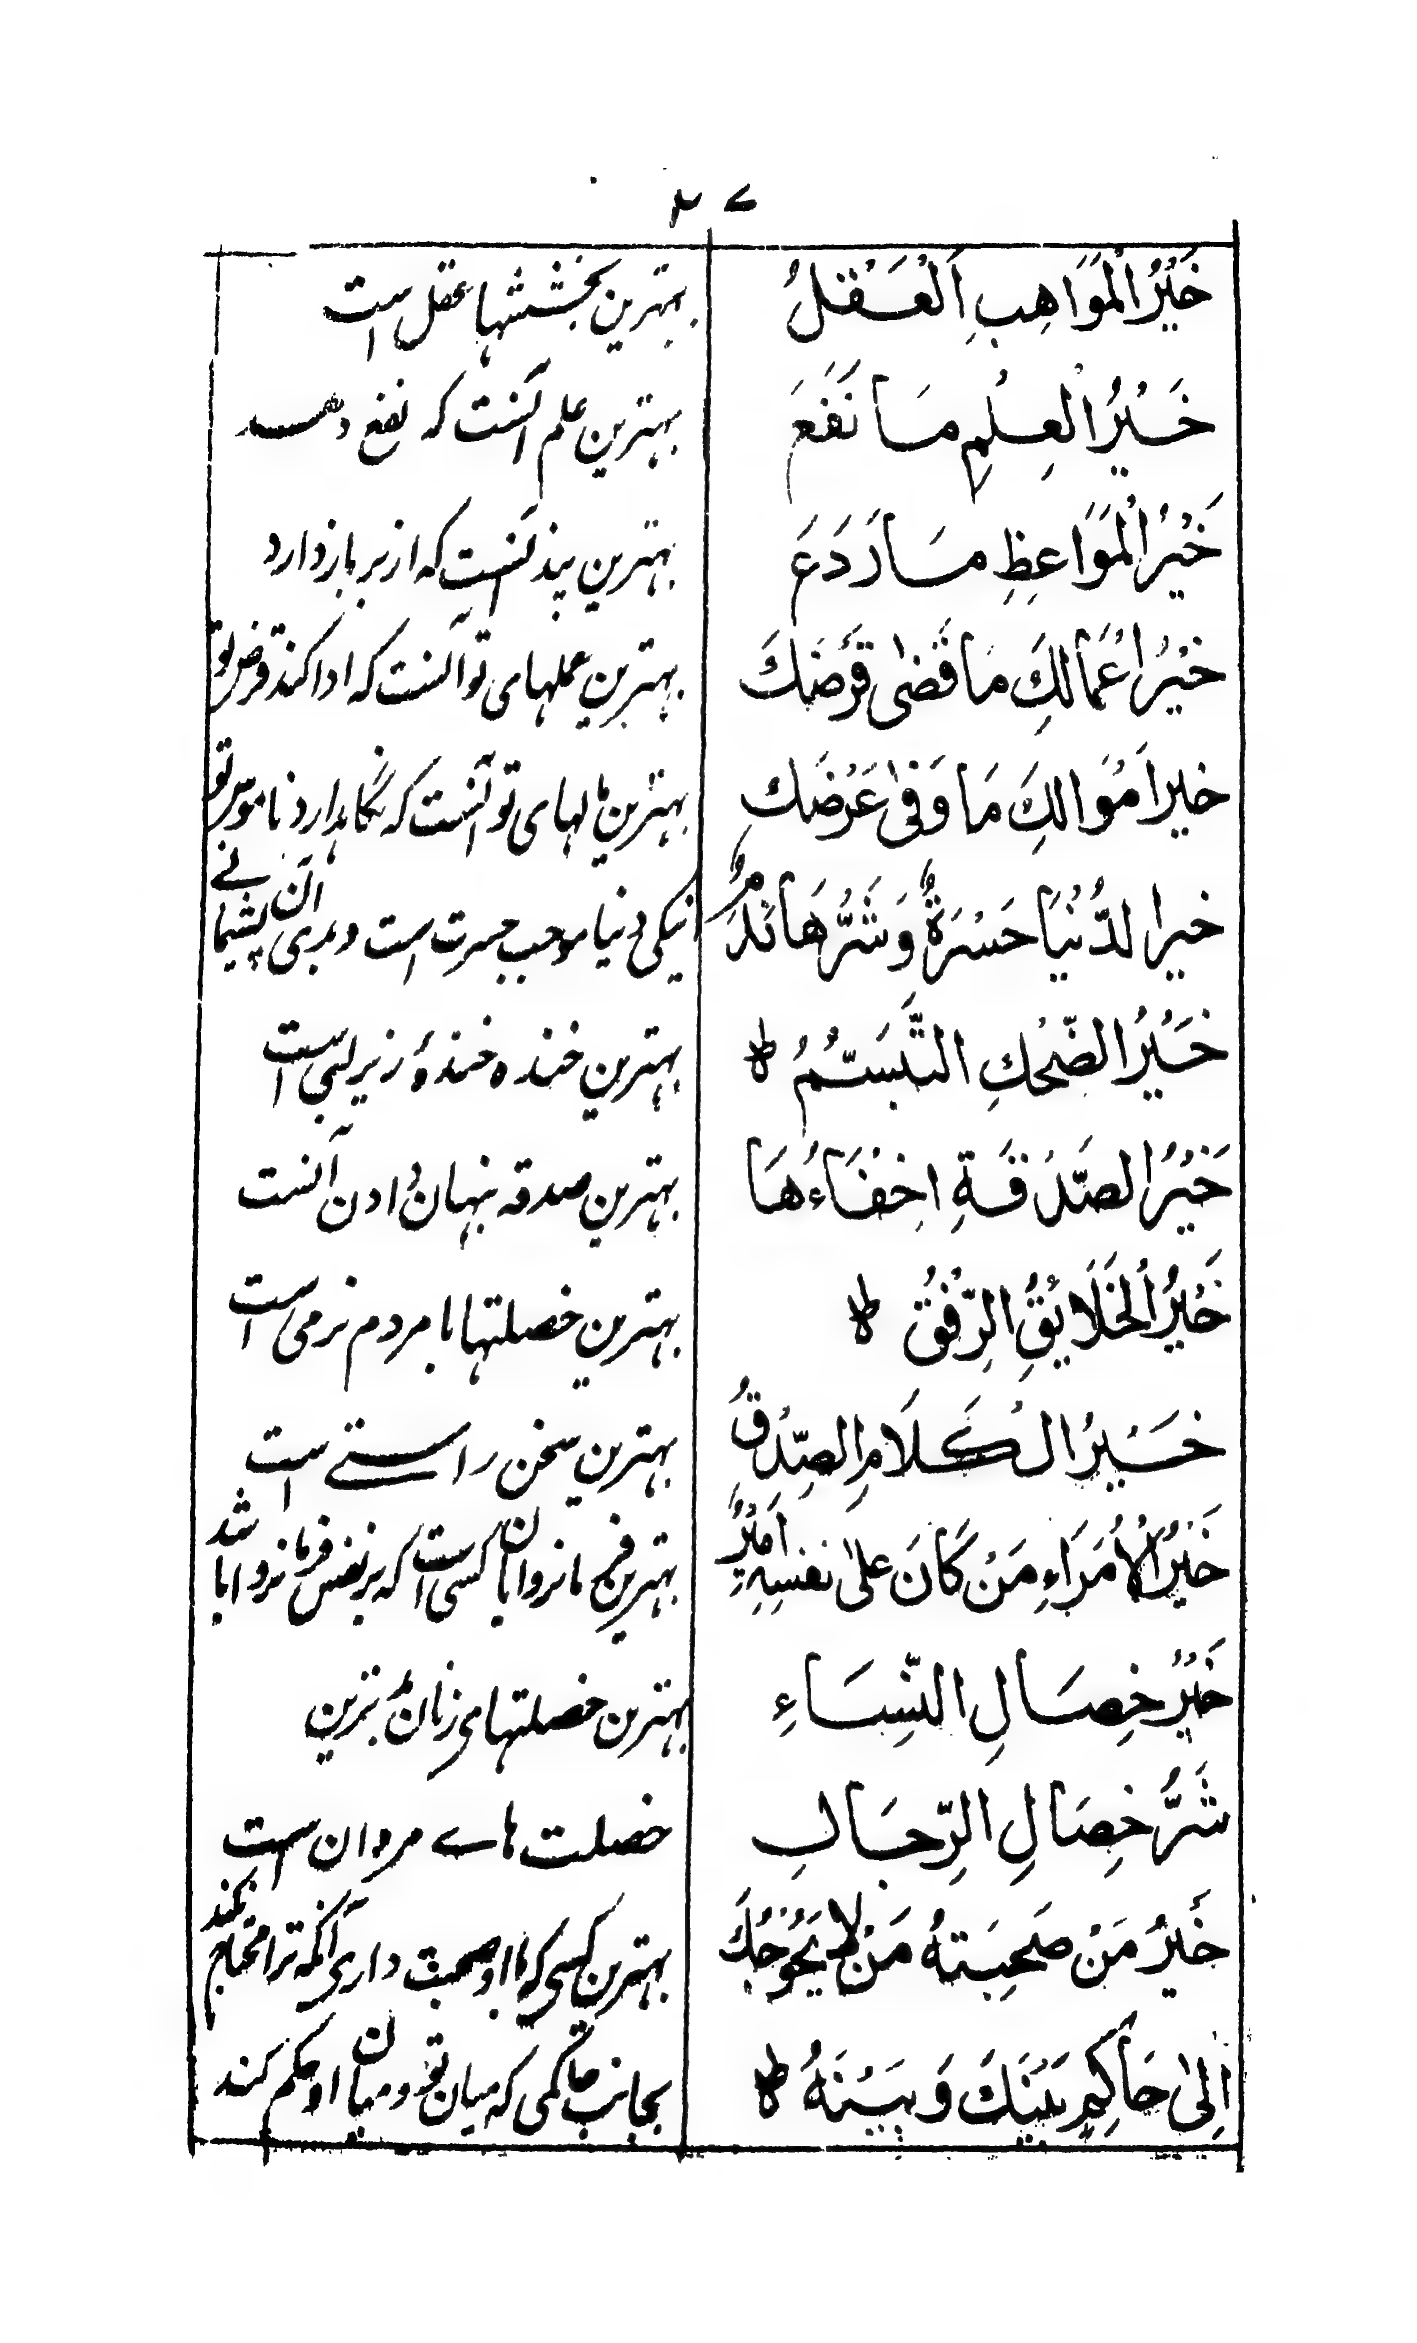 ٤٧
خَيْرُ الْمَوَاهِبِ اَلْعَقْلُ
بهترین بخششها عقل است
خَيْرُ الْعِلْمِ مَا نَفَعَ
بهترین علم آنست که نفع دهد
خَيْرُ الْمَوَاعِظِ مَا رَدَعَ
بهترین پند آنست که از بر باز دارد
خَيْرُ اَعْمَالِكَ مَا قَضٰى قَرْضَكَ
بهترین عملهای تو آنست که ادا کند قرض تو
خير اَمْوَالِكَ مَا وَفٰى عَرْضَكَ
بهترین مالهای تو آنست که نگاهدارد ناموس تو
خير الدُّنْيَا حَسْرَةٌ وَشَرُّهَا نَدَمٌ
نیکی دنیا موجب حسرت است و بدی آن پشیمانے
خَيْرُ الضِّحْكِ التَّبَسُّمُ ط
بهترین خنده خندهٔ زیر لبی است
خَيْرُ الصَّدَقَةِ اِخْفَاءُهَا
بهترین صدقه پنهان دادن آنست
خَيْرُ الْخَلَائِقِ الرِّفْقُ ط
بهترین خصلتها با مردم نرمی است
خَيْرُ الْكَلَامِ الصِّدْقُ
بهترین سخن راستے است
خَيْرُ الْاُمَرَاءِ مَنْ كَانَ عَلٰى نفسِهٖ اَمِيْرٌ
بهترین فرمانروایان کسی است که بر نفس فرمانروا باشد
خَيْرُ خِصَالِ النِّسَاءِ
بهترین خصلتهای زنان بدترین
شَرُّ خِصَالِ الرِّجَالِ
خصلت هاے مردان است
خَيْرُ مَنْ صَحِبْتَهُ مَنْ لَا يَحُوْجُكَ
بهترین کسی که با او صحبت داری آنکه ترا محتاج نکند
اِلٰى حَاكِمٍ بَيْنَكَ وَبَيْنَهُ ط
بجانب حاکمی که میان تو و میان او حکم کند